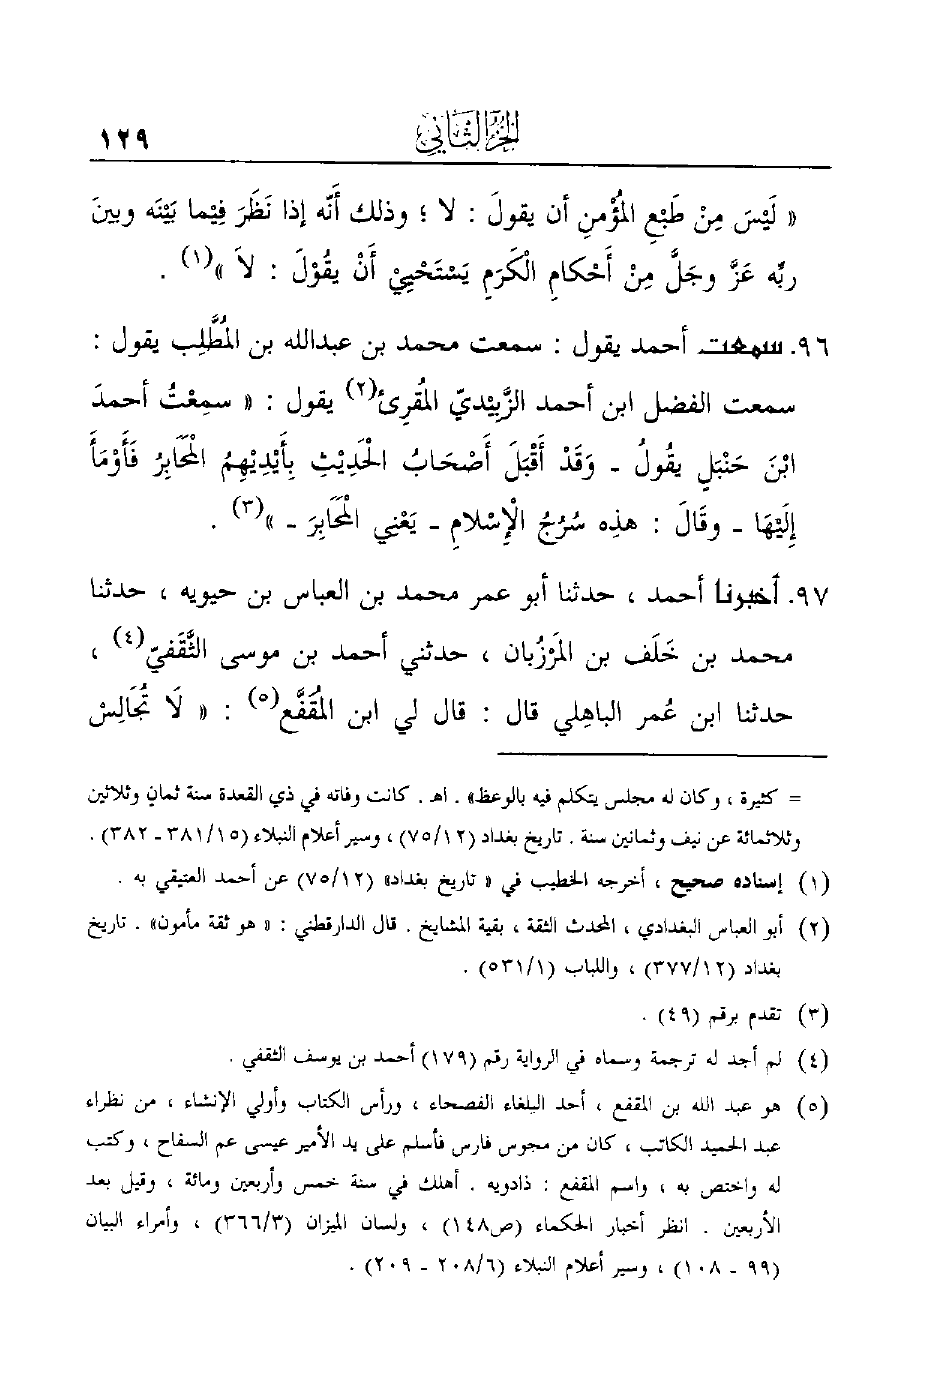 الجزء الثاني
١٢٩
« لَيْسَ مِنْ طَبْعِ المُؤْمنِ أن يقولَ : لا ؛ وذلك أَنَّه إذا نَظَرَ فِيْما بَيْنَه وبينَ
ربِّه عَزَّ وجَلَّ مِنْ أَحْكامِ الْكَرَمِ يَسْتَحْيِيْ أَنْ يقُوْلَ : لاَ »(١) .
٩٦. سمعت أحمد يقول : سمعت محمد بن عبدالله بن المُطَّلِب يقول :
سمعت الفضل ابن أحمد الزَّبِيْديّ المُقرِئ(٢) يقول : « سمِعْتُ أحمدَ
ابْنَ حَنْبَلٍ يقُولُ - وَقَدْ أَقْبَلَ أَصْحَابُ الحَدِيْثِ بِأَيْدِيْهِمُ الْمَحَابِرُ فَأَوْمَأَ
إِلَيْهَا - وقَالَ : هذِه سُرُجُ الْإِسْلامِ - يَعْنِي الْمَحَابِرَ - »(٣) .
٩٧. أخبرنا أحمد ، حدثنا أبو عمر محمد بن العباس بن حيويه ، حدثنا
محمد بن خَلَف بن المَرْزُبان ، حدثني أحمد بن موسى الثَّقَفيّ(٤) ،
حدثنا ابن عُمر الباهِلي قال : قال لي ابن المُقَفَّع(٥) : « لَا تُجَالِسْ
= كثيرة ، وكان له مجلس يتكلم فيه بالوعظ» . اهـ . كانت وفاته في ذي القعدة سنة ثمان وثلاثين
وثلاثمائة عن نيف وثمانين سنة . تاريخ بغداد (٧٥/١٢) ، وسير أعلام النبلاء (٣٨١/١٥ - ٣٨٢) .
(١) إسناده صحيح ، أخرجه الخطيب في « تاريخ بغداد» (٧٥/١٢) عن أحمد العتيقي به .
(٢) أبو العباس البغدادي ، المحدث الثقة ، بقية المشايخ . قال الدارقطني : « هو ثقة مأمون» . تاريخ
بغداد (٣٧٧/١٢) ، واللباب (٥٣١/١) .
(٣) تقدم برقم (٤٩) .
(٤) لم أجد له ترجمة وسماه في الرواية رقم (١٧٩) أحمد بن يوسف الثقفي .
(٥) هو عبد الله بن المقفع ، أحد البلغاء الفصحاء ، ورأس الكتاب وأولي الإنشاء ، من نظراء
عبد الحميد الكاتب ، كان من مجوس فارس فأسلم على يد الأمير عيسى عم السفاح ، وكتب
له واختص به ، واسم المقفع : ذادويه . أهلك في سنة خمس وأربعين ومائة ، وقيل بعد
الأربعين . انظر أخبار الحكماء (ص١٤٨) ، ولسان الميزان (٣٦٦/٣) ، وأمراء البيان
(٩٩ - ١٠٨) ، وسير أعلام النبلاء (٢٠٨/٦ - ٢٠٩) .